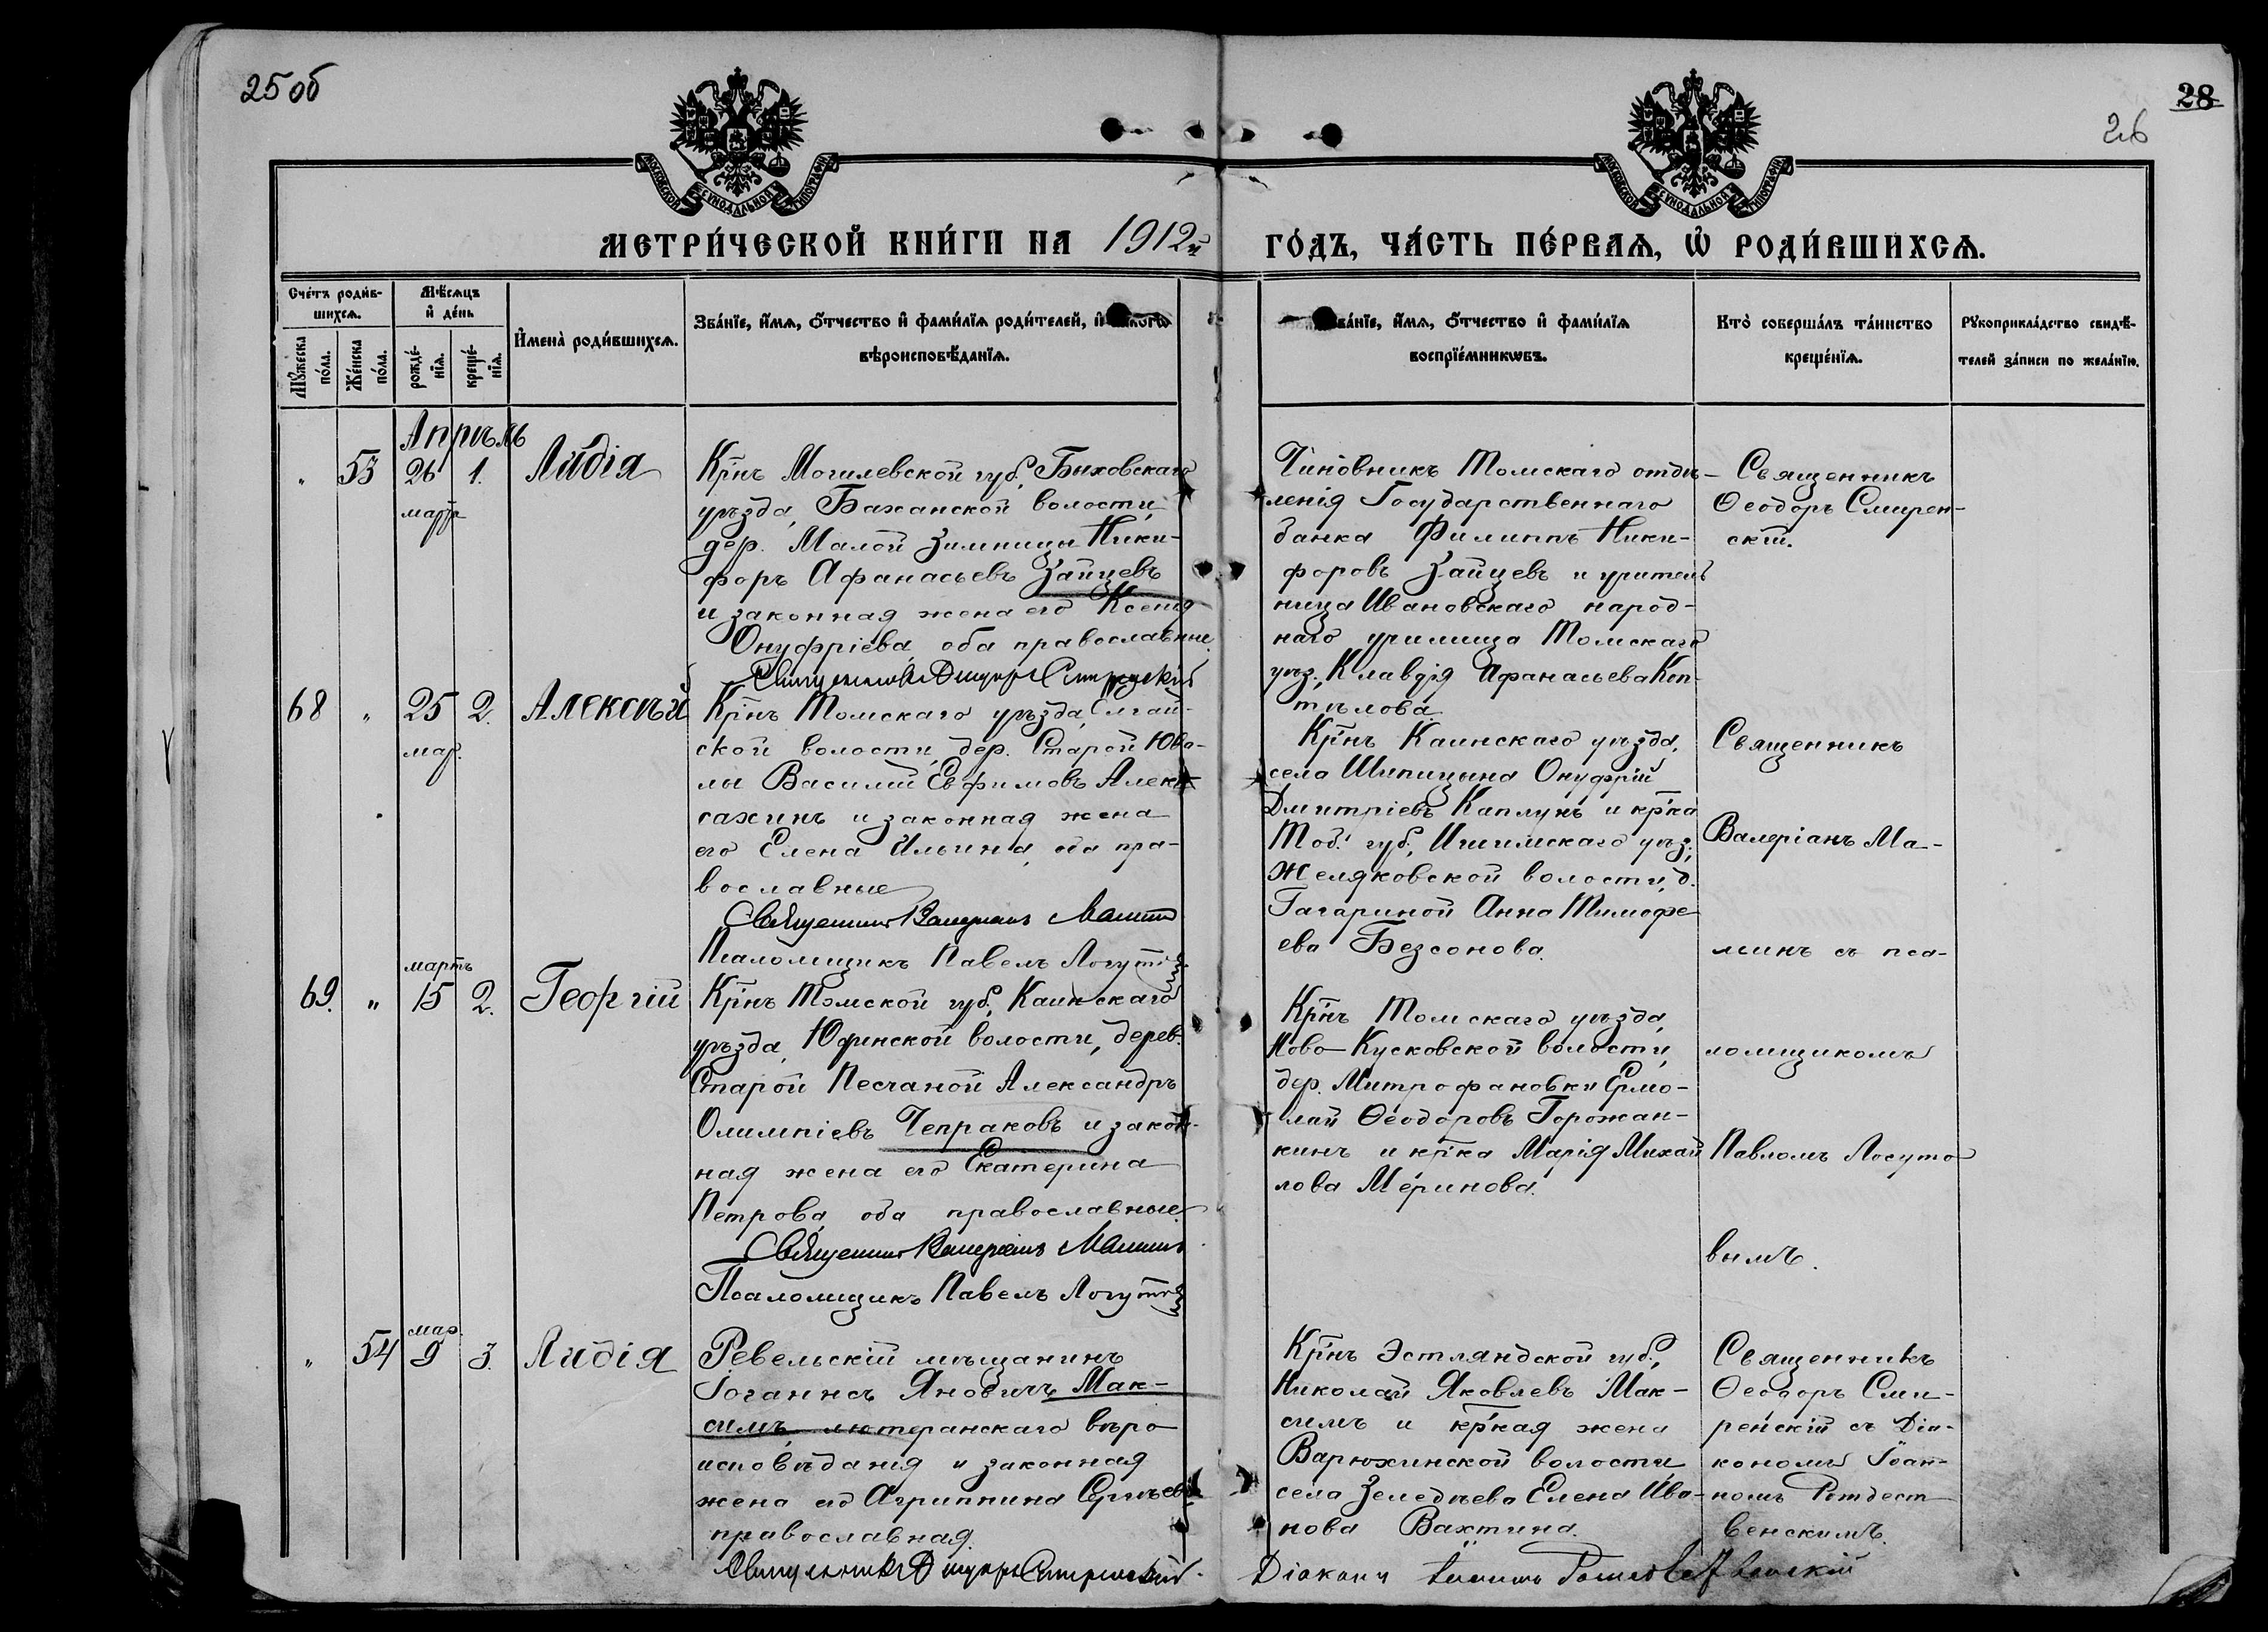 25 об
28
26
МОСКОВСКОЙ СѴНОДАЛЬНОЙ ТИПОГРАФІИ
МОСКОВСКОЙ СѴНОДАЛЬНОЙ ТИПОГРАФІИ
МЕТРИ́ЧЕСКОЙ КНИ́ГИ НА 1912й
ГО́ДЪ, ЧА́СТЬ ПЕ́РВАѦ, Ѡ҆ РОДИ́ВШИХСѦ.
Сче́тъ роди́в-
шихсѧ.
Мѣ́сѧцъ
и҆ де́нь
Мꙋ́жеска
по́ла.
Же́нска
по́ла.
рожде́-
нїѧ.
креще́-
нїѧ.
И҆мена̀ роди́вшихсѧ.
Зва́нїе, и҆́мѧ, ѻ҆́тчество и҆ фами́лїѧ роди́телей, и҆
вѣроисповѣ́данїѧ.
Зва́нїе, и҆́мѧ, ѻ҆́тчество и҆ фами́лїѧ
воспрїе́мникѡвъ.
Кто̀ соверша́лъ та́инство
креще́нїѧ.
Рꙋкоприкла́дство свидѣ́-
телей за́писи по жела́нїю.
Апрѣль
" 53 26 1. Лидія
марта
Кр̅нъ Могилевской губ., Быховскаго
уѣзда, Баханской волости,
дер. Малой Зимницы Ники-
форъ Афанасьевъ Зайцевъ
и законная жена его Ксенія
Онуфріева, оба православные.
Священникъ Ѳеодоръ Смиренскій
Чиновникъ Томскаго отдѣ-
ленія Государственнаго
банка Филиппъ Ники-
форовъ Зайцевъ и учитель
ница Ивановскаго народ-
наго училища Томскаго
уѣз., Клавдія Афанасьева Коп-
тѣлова.
Священникъ
Ѳеодоръ Смирен-
скій.
68 " 25 2. Алексѣй
мар.
Кр̅нъ Томскаго уѣзда, Елгай-
ской волости, дер. Старой Юва-
лы Василій Евфимовъ Алек-
сахинъ и законная жена
его Елена Ильина, оба пра-
вославные
Священникъ Валеріанъ Маминъ
Псаломщикъ Павелъ Логутовъ
Кр̅нъ Каинскаго уѣзда,
села Шипицына Онуфрій
Дмитріевъ Каплунъ и кр̅ка
Тоб. губ., Ишимскаго уѣз.,
Желяковской волости, д.
Гагариной Анна Тимофе
ева Безсонова.
Священникъ
Валеріанъ Ма-
минъ съ пса-
ломщикомъ
Павломъ Логуто
вымъ.
мартъ
69. " 15 2. Георгій
Кр̅нъ Томской губ., Каинскаго
уѣзда, Юдинской волости, дерев.
Старой Песчаной Александръ
Олимпіевъ Чепраковъ и закон-
ная жена его Екатерина
Петрова, оба православные.
Священникъ Валеріанъ Маминъ
Псаломщикъ Павелъ Логутовъ
Кр̅нъ Томскаго уѣзда,
Ново-Кусковской волости,
дер. Митрофановки Ермо-
лай Ѳеодоровъ Горожан-
кинъ и кр̅ка Марія Михай
лова Меринова.
мар.
" 54 9 3. Лидія
Ревельскій мѣщанинъ
Іоганнсъ Яновичъ Мак-
симъ, лютеранскаго вѣро
исповѣданія и законная
жена его Агриппина Сергѣева
православная.
Священникъ Ѳеодоръ Смиренскій.
Кр̅нъ Эстляндской губ.,
Николай Яковлевъ Мак-
симъ и кр̅кая жена
Варюхинской волости
села Зеледѣева Елена Ива-
нова Вахтина.
Священникъ
Ѳеодоръ Сми-
ренскій съ Діа-
кономъ Іоан-
номъ Рождест
венскимъ.
Діаконъ Іоаннъ Рождественскій